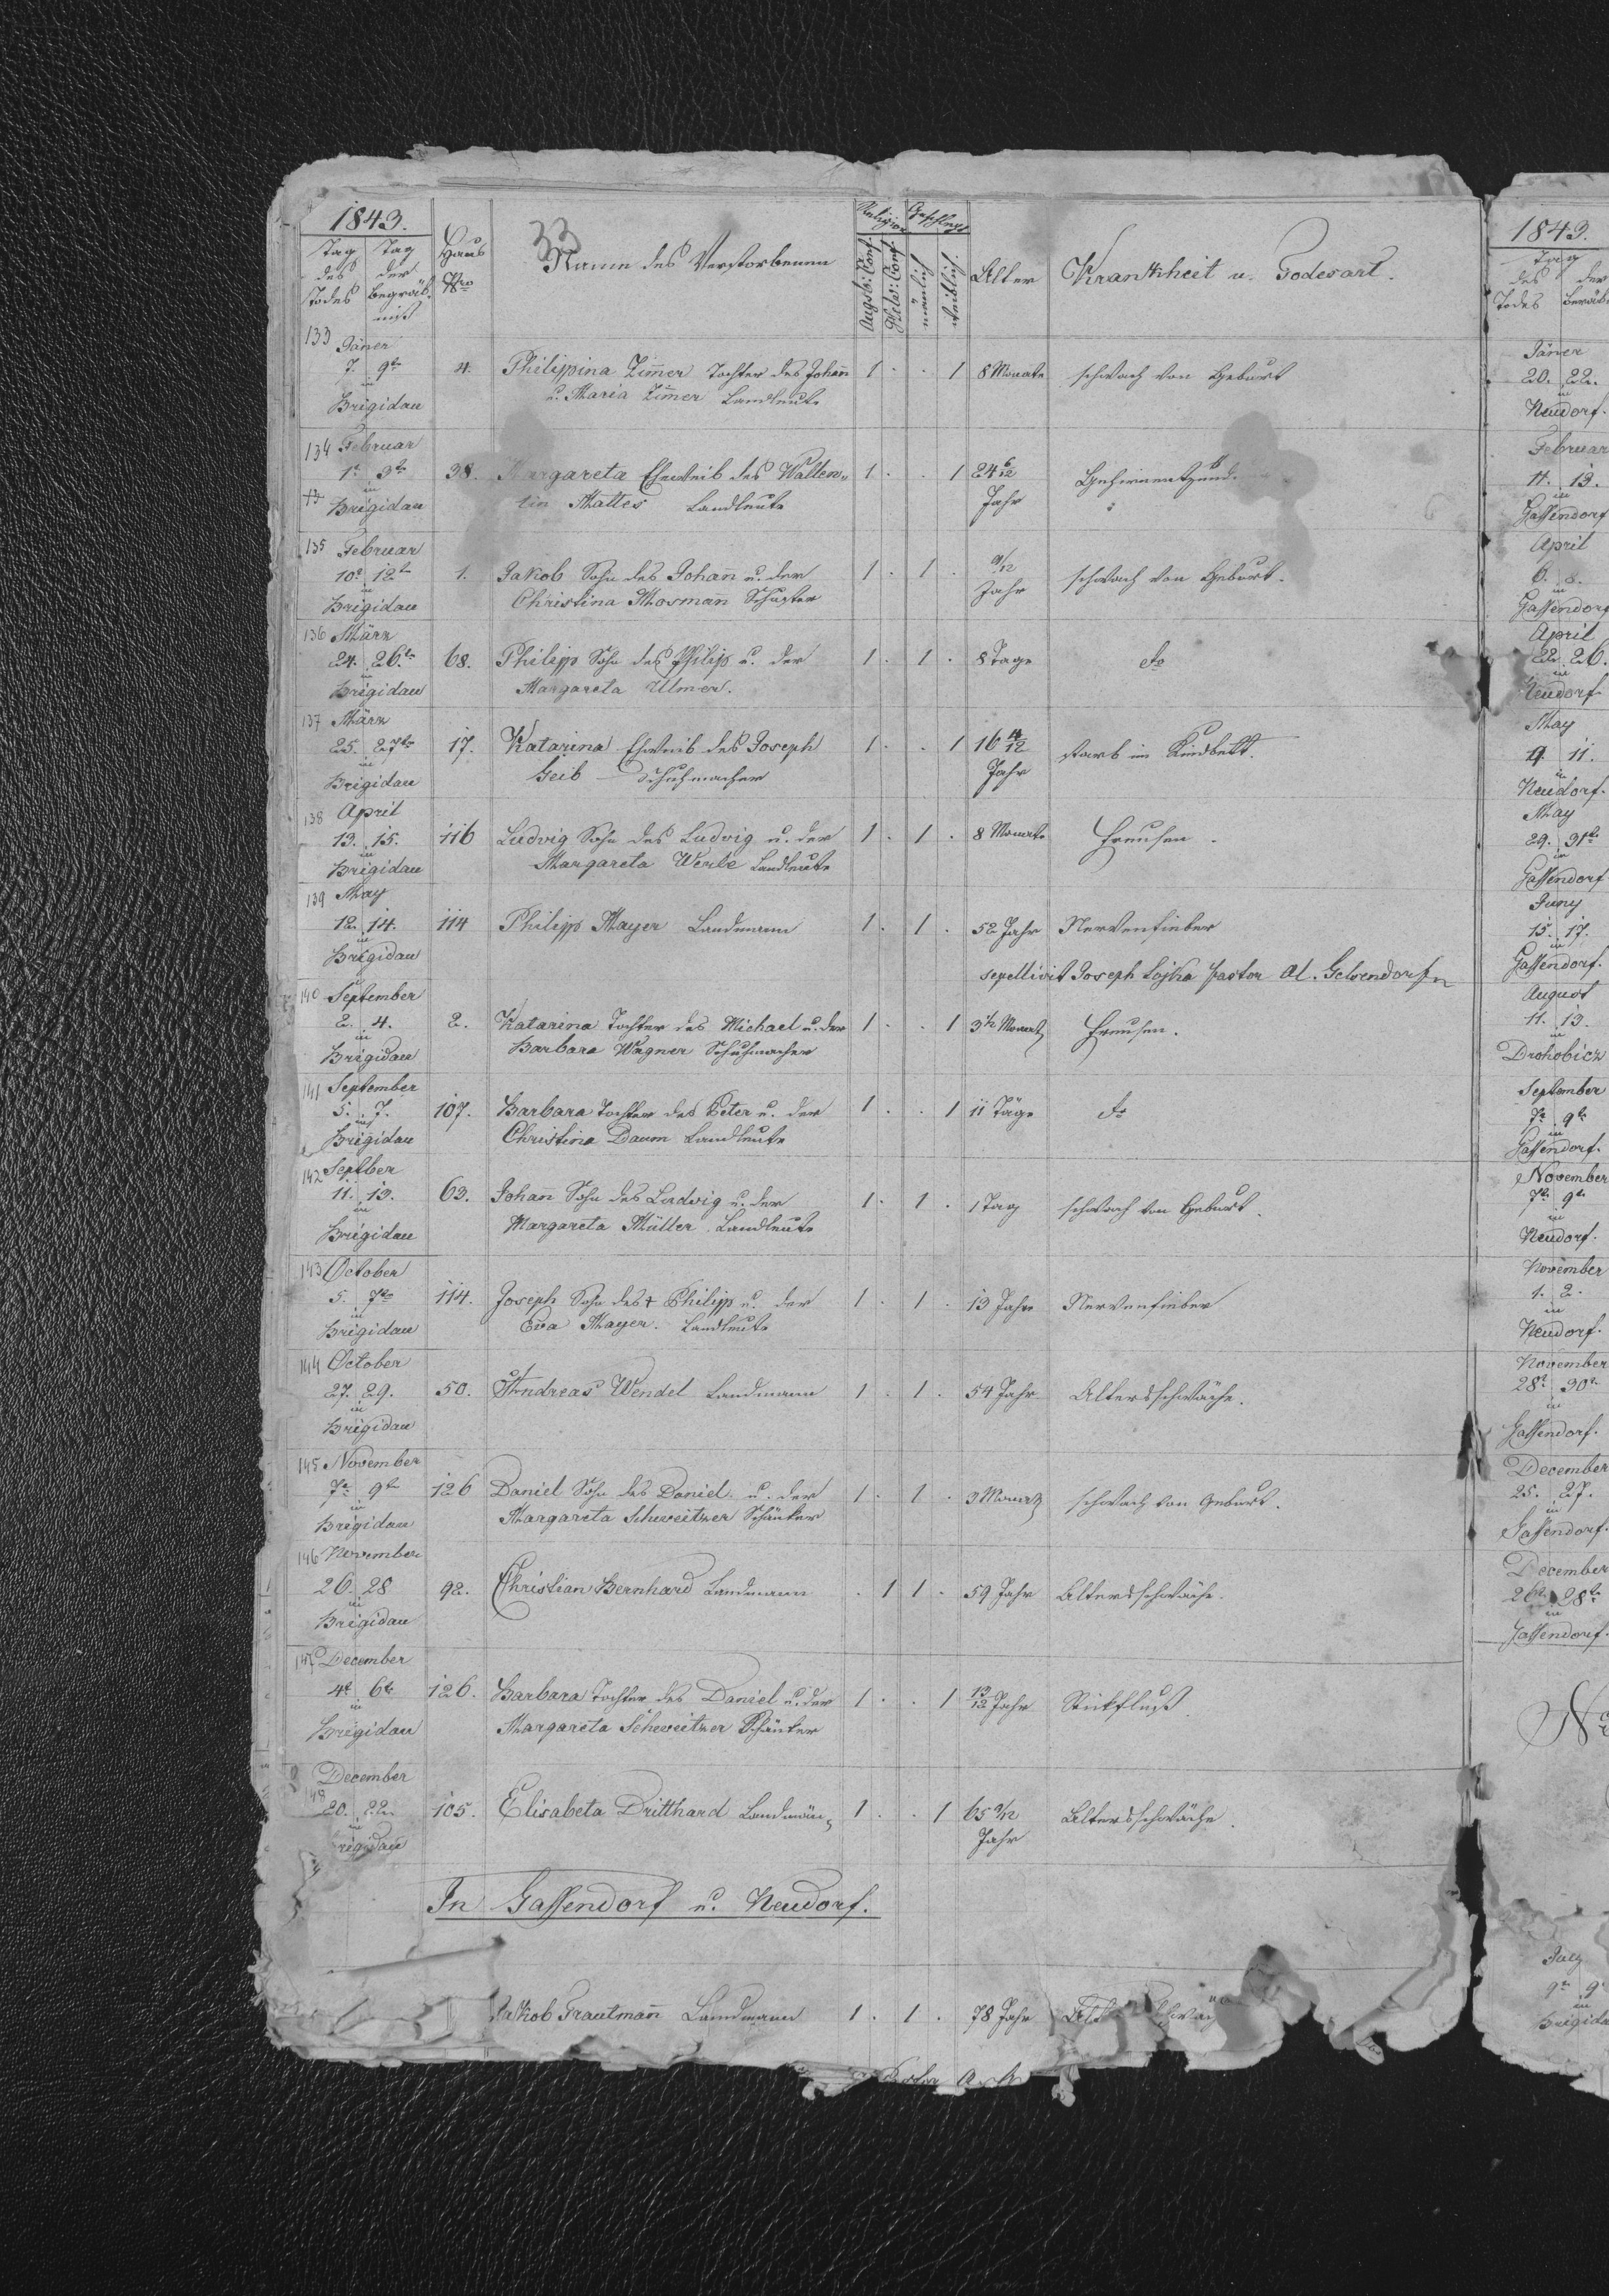 33
1843.
Tag des Todes
Tag der Begräbniß
Haus Nro
Name des Verstorbenen
Religion
Augsb: Conf.
Helv: Conf.
Geschlecht
mänlich
weiblich.
Alter
Krankheit u. Todesart.
133 Jäner
7. 9te 4. Philippina Zimer Tochter des Johañ 1 . . 1 8 Monate schwach von Geburt
in Brigidau u. Maria Zimer Landleute
134 Februar
1t 3te 38. Margareta Eheweib des Wallen- 1 . . 1 24 6/12
in Brigidau tin Mattes Landleute Jahr
135 Februar
10t 12te 1. Jakob Sohn des Johañ u. der 1 . 1 . schwach von Geburt.
in Brigidau Christina Mosmañ Schuster Jahr
136 März
24. 26.te 68. Philipp Sohn des Philip u. der 1 . 1 . 8 Tage do
in Brigidau Margareta Ulmer.
137 März
25. 27te 17. Katarina Eheweib des Joseph 1 . . 1 16 4/12 starb im Kindbett.
in Brigidau Geib Schuhmacher Jahr
138 April
13. 15. 116 Ludvig Sohn des Ludvig u. der 1 . 1 . 8 Monate Freusen.
in Brigidau Margareta Werle Landleute
139 May
12. 14. 114 Philipp Mayer Landmann 1 . 1 . 52 Jahr Nervenfieber
in Brigidau sepellivit Joseph Lojka pastor Al. Gelsendorf
140 September
2. 4. 2. Katarina Tochter des Michael u. der 1 . . 1 3½ Monat Freusen.
in Brigidau Barbara Wagner Schuhmacher
141 September
5. 7. 107. Barbara Tochter des Peter u. der 1 . . 1 11 Täge do
in Brigidau Christina Daum Landleute
142 Septber
11. 13. 63. Johañ Sohn des Ludvig u. der 1 . 1 . 1 Tag schwach von Geburt.
in Brigidau Margareta Müller Landleute
143 October
5. 7te 114. Joseph Sohn des † Philipp u. der 1 . 1 . 13 Jahre Nervenfieber
in Brigidau Eva Mayer. Landleute
144 October
27. 29. 50. Andreas Wendel Landmann 1 . 1 . 54 Jahr Altersschwäche.
in Brigidau
145 November
7te 9te 126 Daniel Sohn des Daniel u. der 1 . 1 . 3 Monat schwach von Geburt.
in Brigidau Margareta Schweitzer Schänker
146 November
26. 28 92. Christian Bernhard Landmann . 1 1 . 59 Jahr Altersschwäche.
in Brigidau
147 December
4t 6te 126. Barbara Tochter des Daniel u. der 1 . . 1 13/12 Jahr Stickfluß.
in Brigidau Margareta Schweitzer Schänker
148 December
20. 22. 105. Elisabeta Dritthard Landmän- 1 . . 1 65 Altersschwäche.
in rigidau Jahr
In Gassendorf u. Neudorf.
Jakob Trautmañ Landmann 1 . 1 . 78 Jahr
1843.
Tag
des Todes
der
Jäner
20. 22.
in
Neudorf.
Februar
11. 13.
in
Gassendorf
April
6. 8.
in
Gassendorf
April
22. 26.
in
Neudorf
May
9. 11.
in
Neudorf.
May
29. 31te
in
Gassendorf
Juny
15. 17.
in
Gassendorf.
August
11. 13.
in
Drohobicz
September
7te 9te
in
Gassendorf.
November
7te 9te
in
Neudorf.
November
1. 2.
in
Neudorf.
November
28t 30te
in
Gassendorf.
December
25. 27.
in
Gassendorf.
December
26. 28te
in
Gassendorf.
July
9te 9
in
Brigida